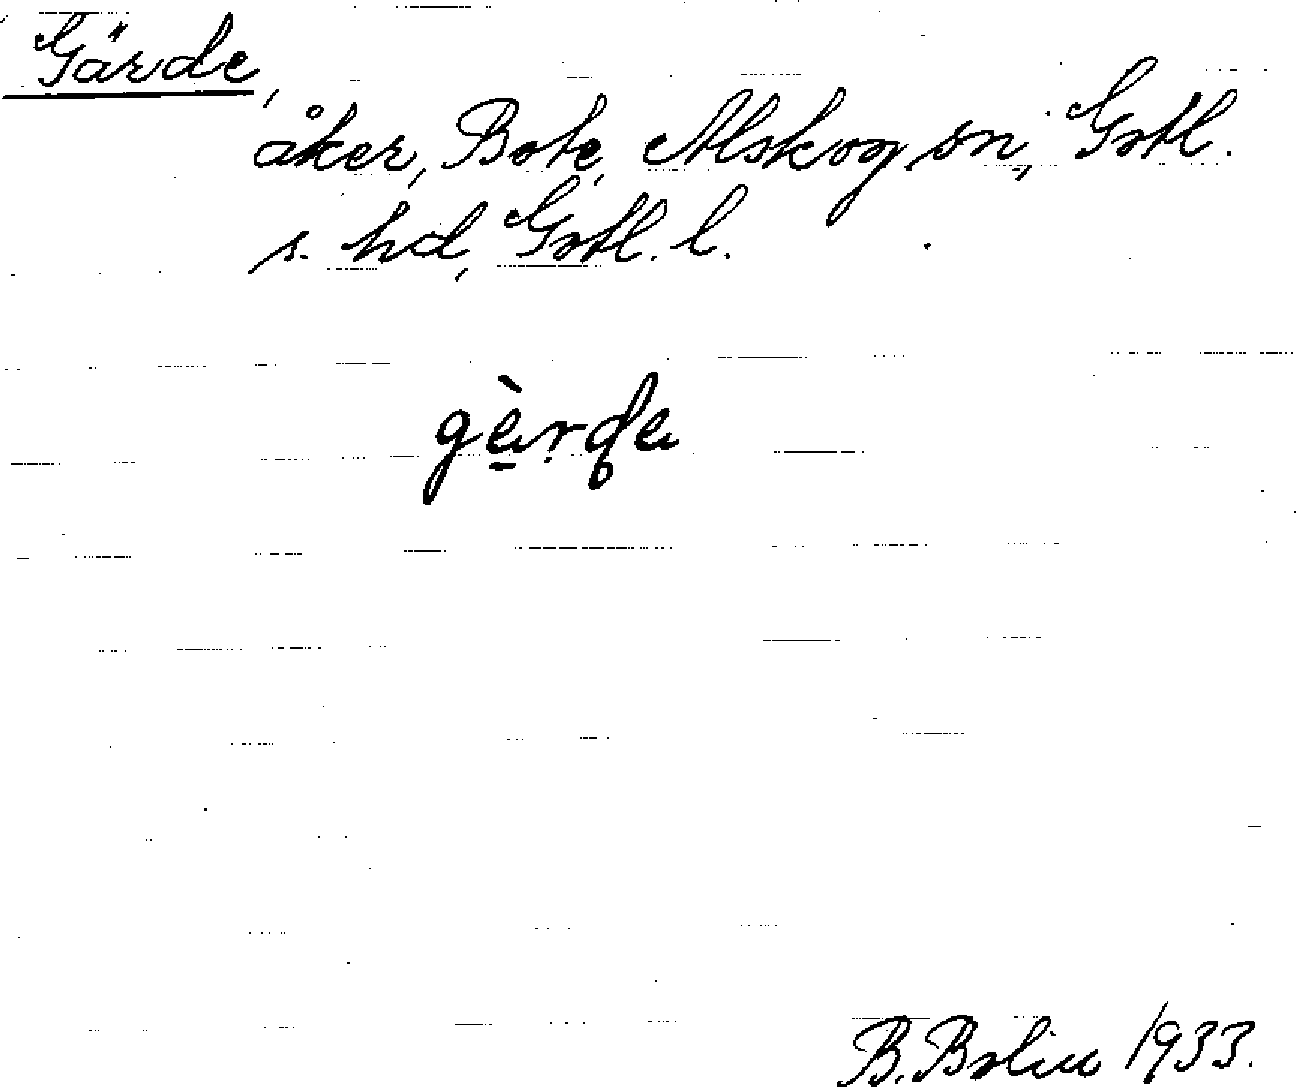 Gärde,
åker, Bote, Alskog sn, Gotl.
s. hd, Gotl. l.
gèrde
B. Bolin 1933.